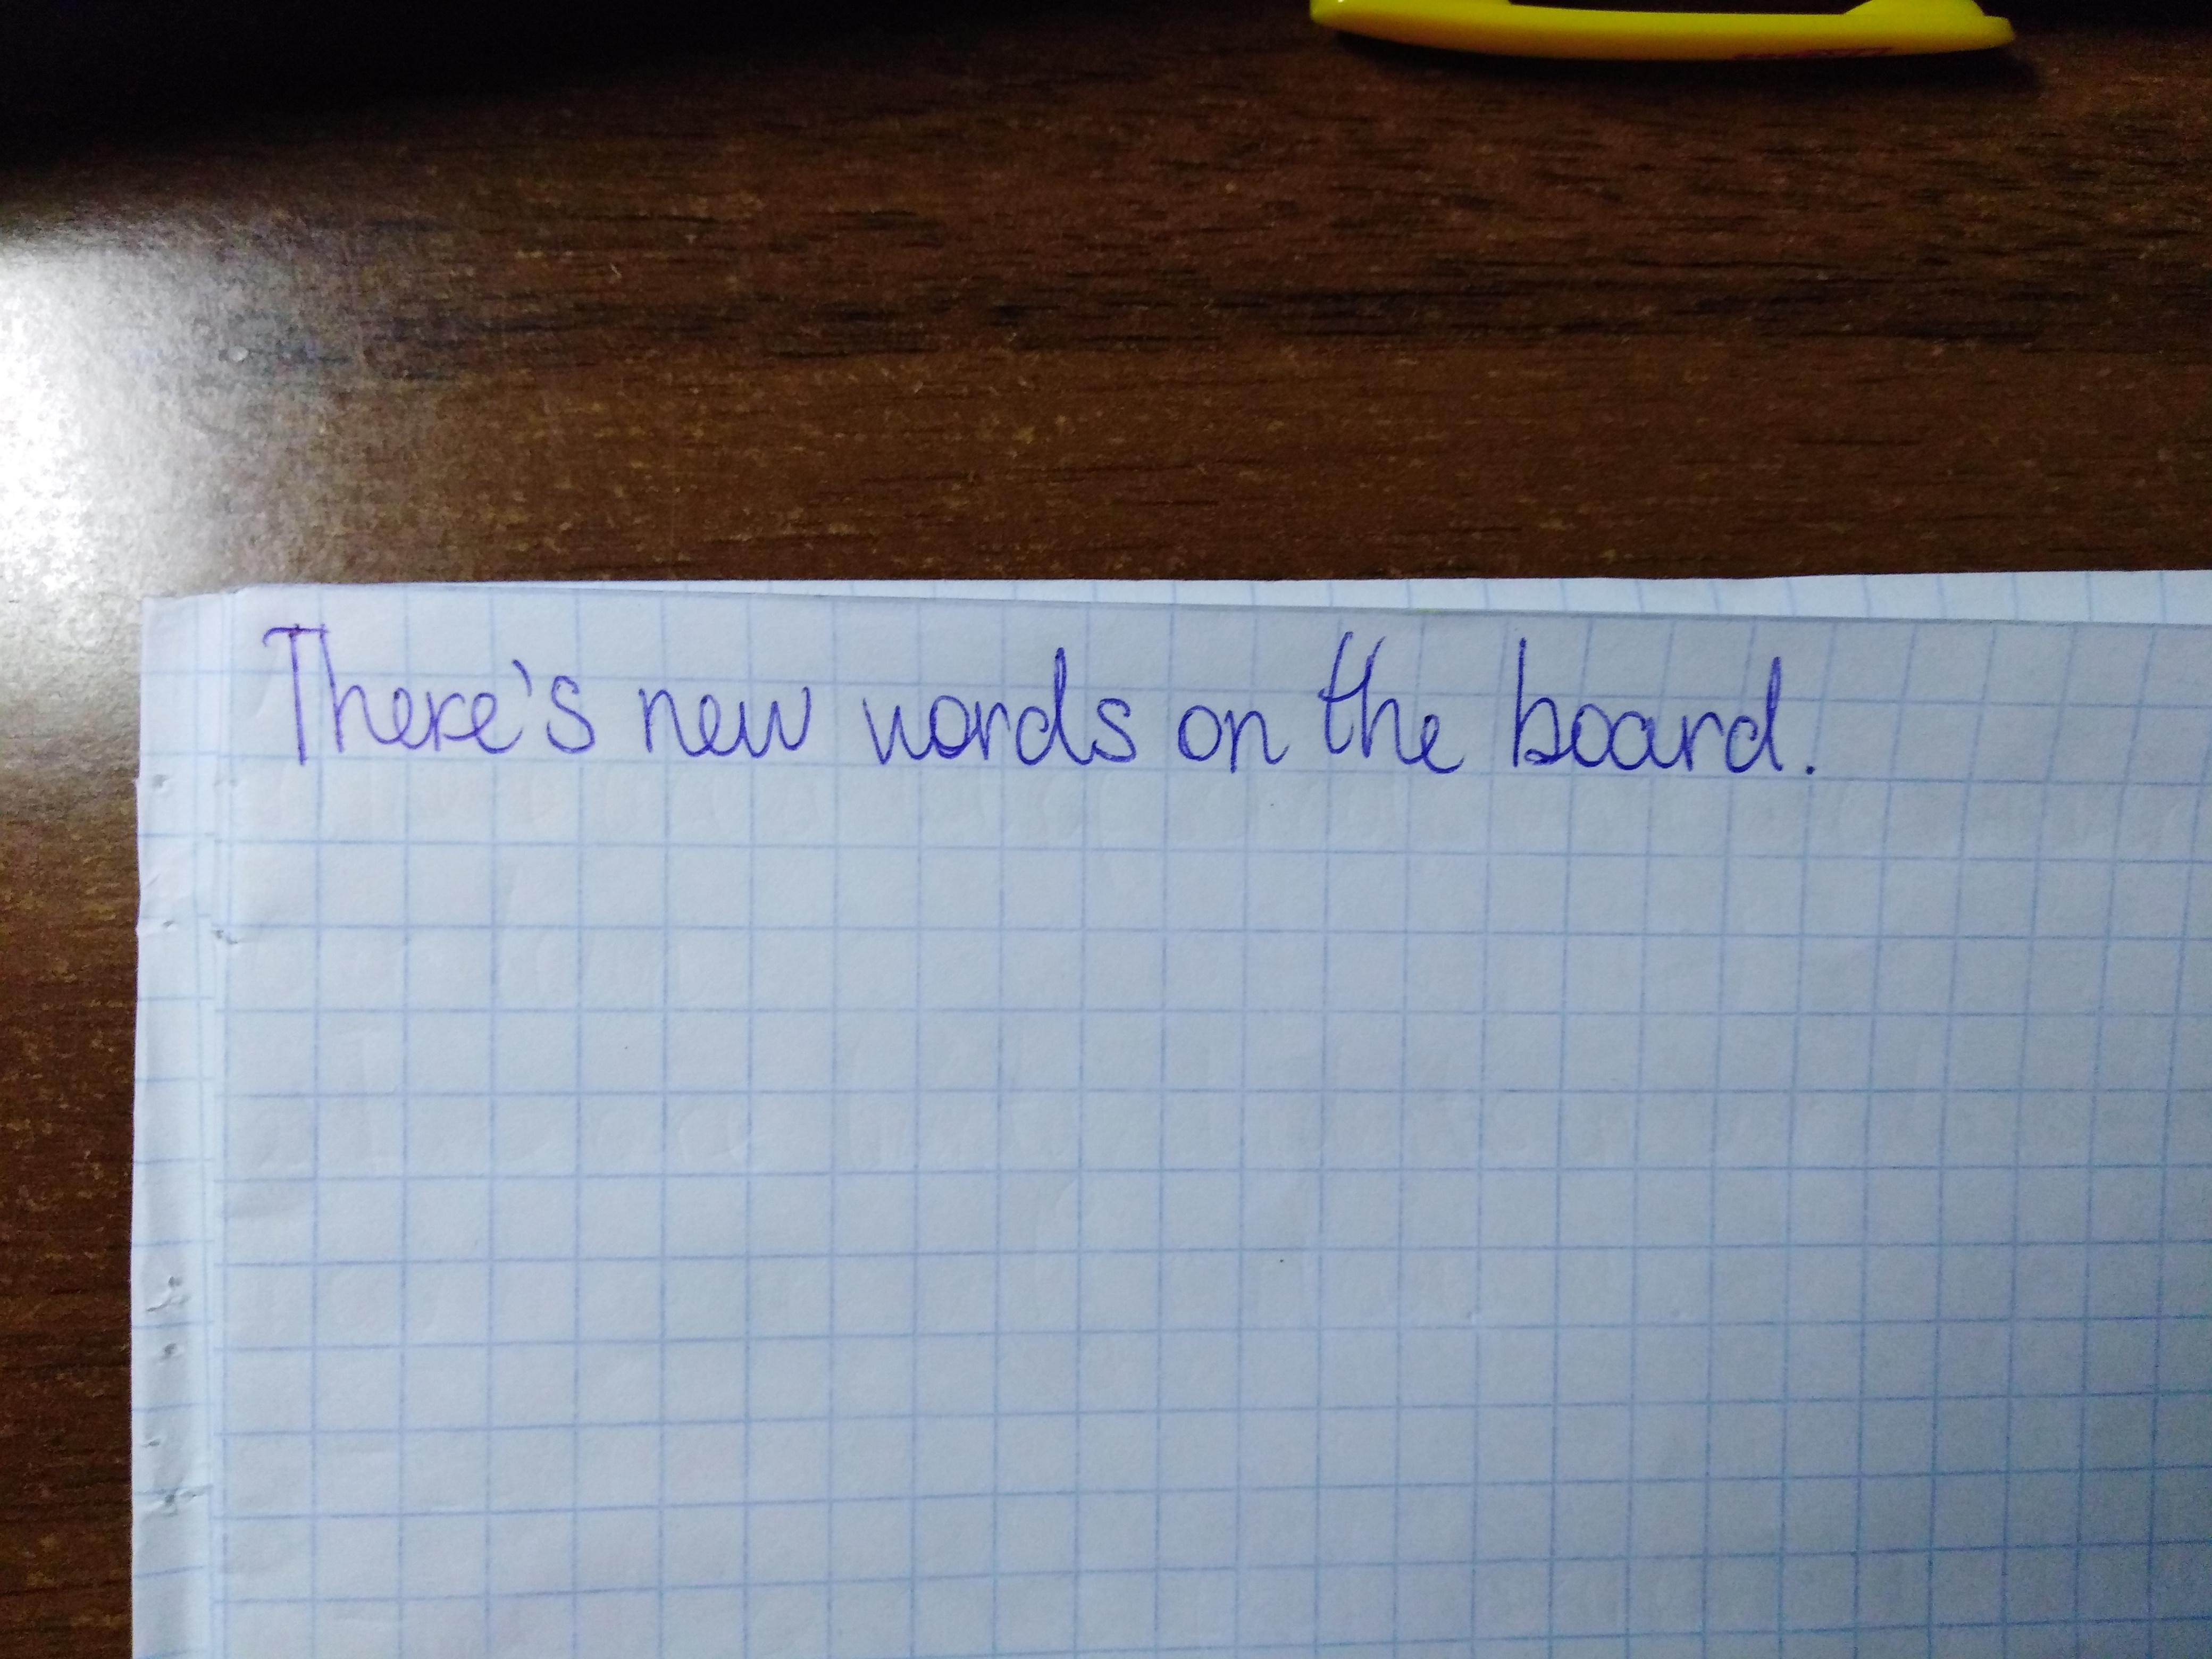 There's new words on the board.